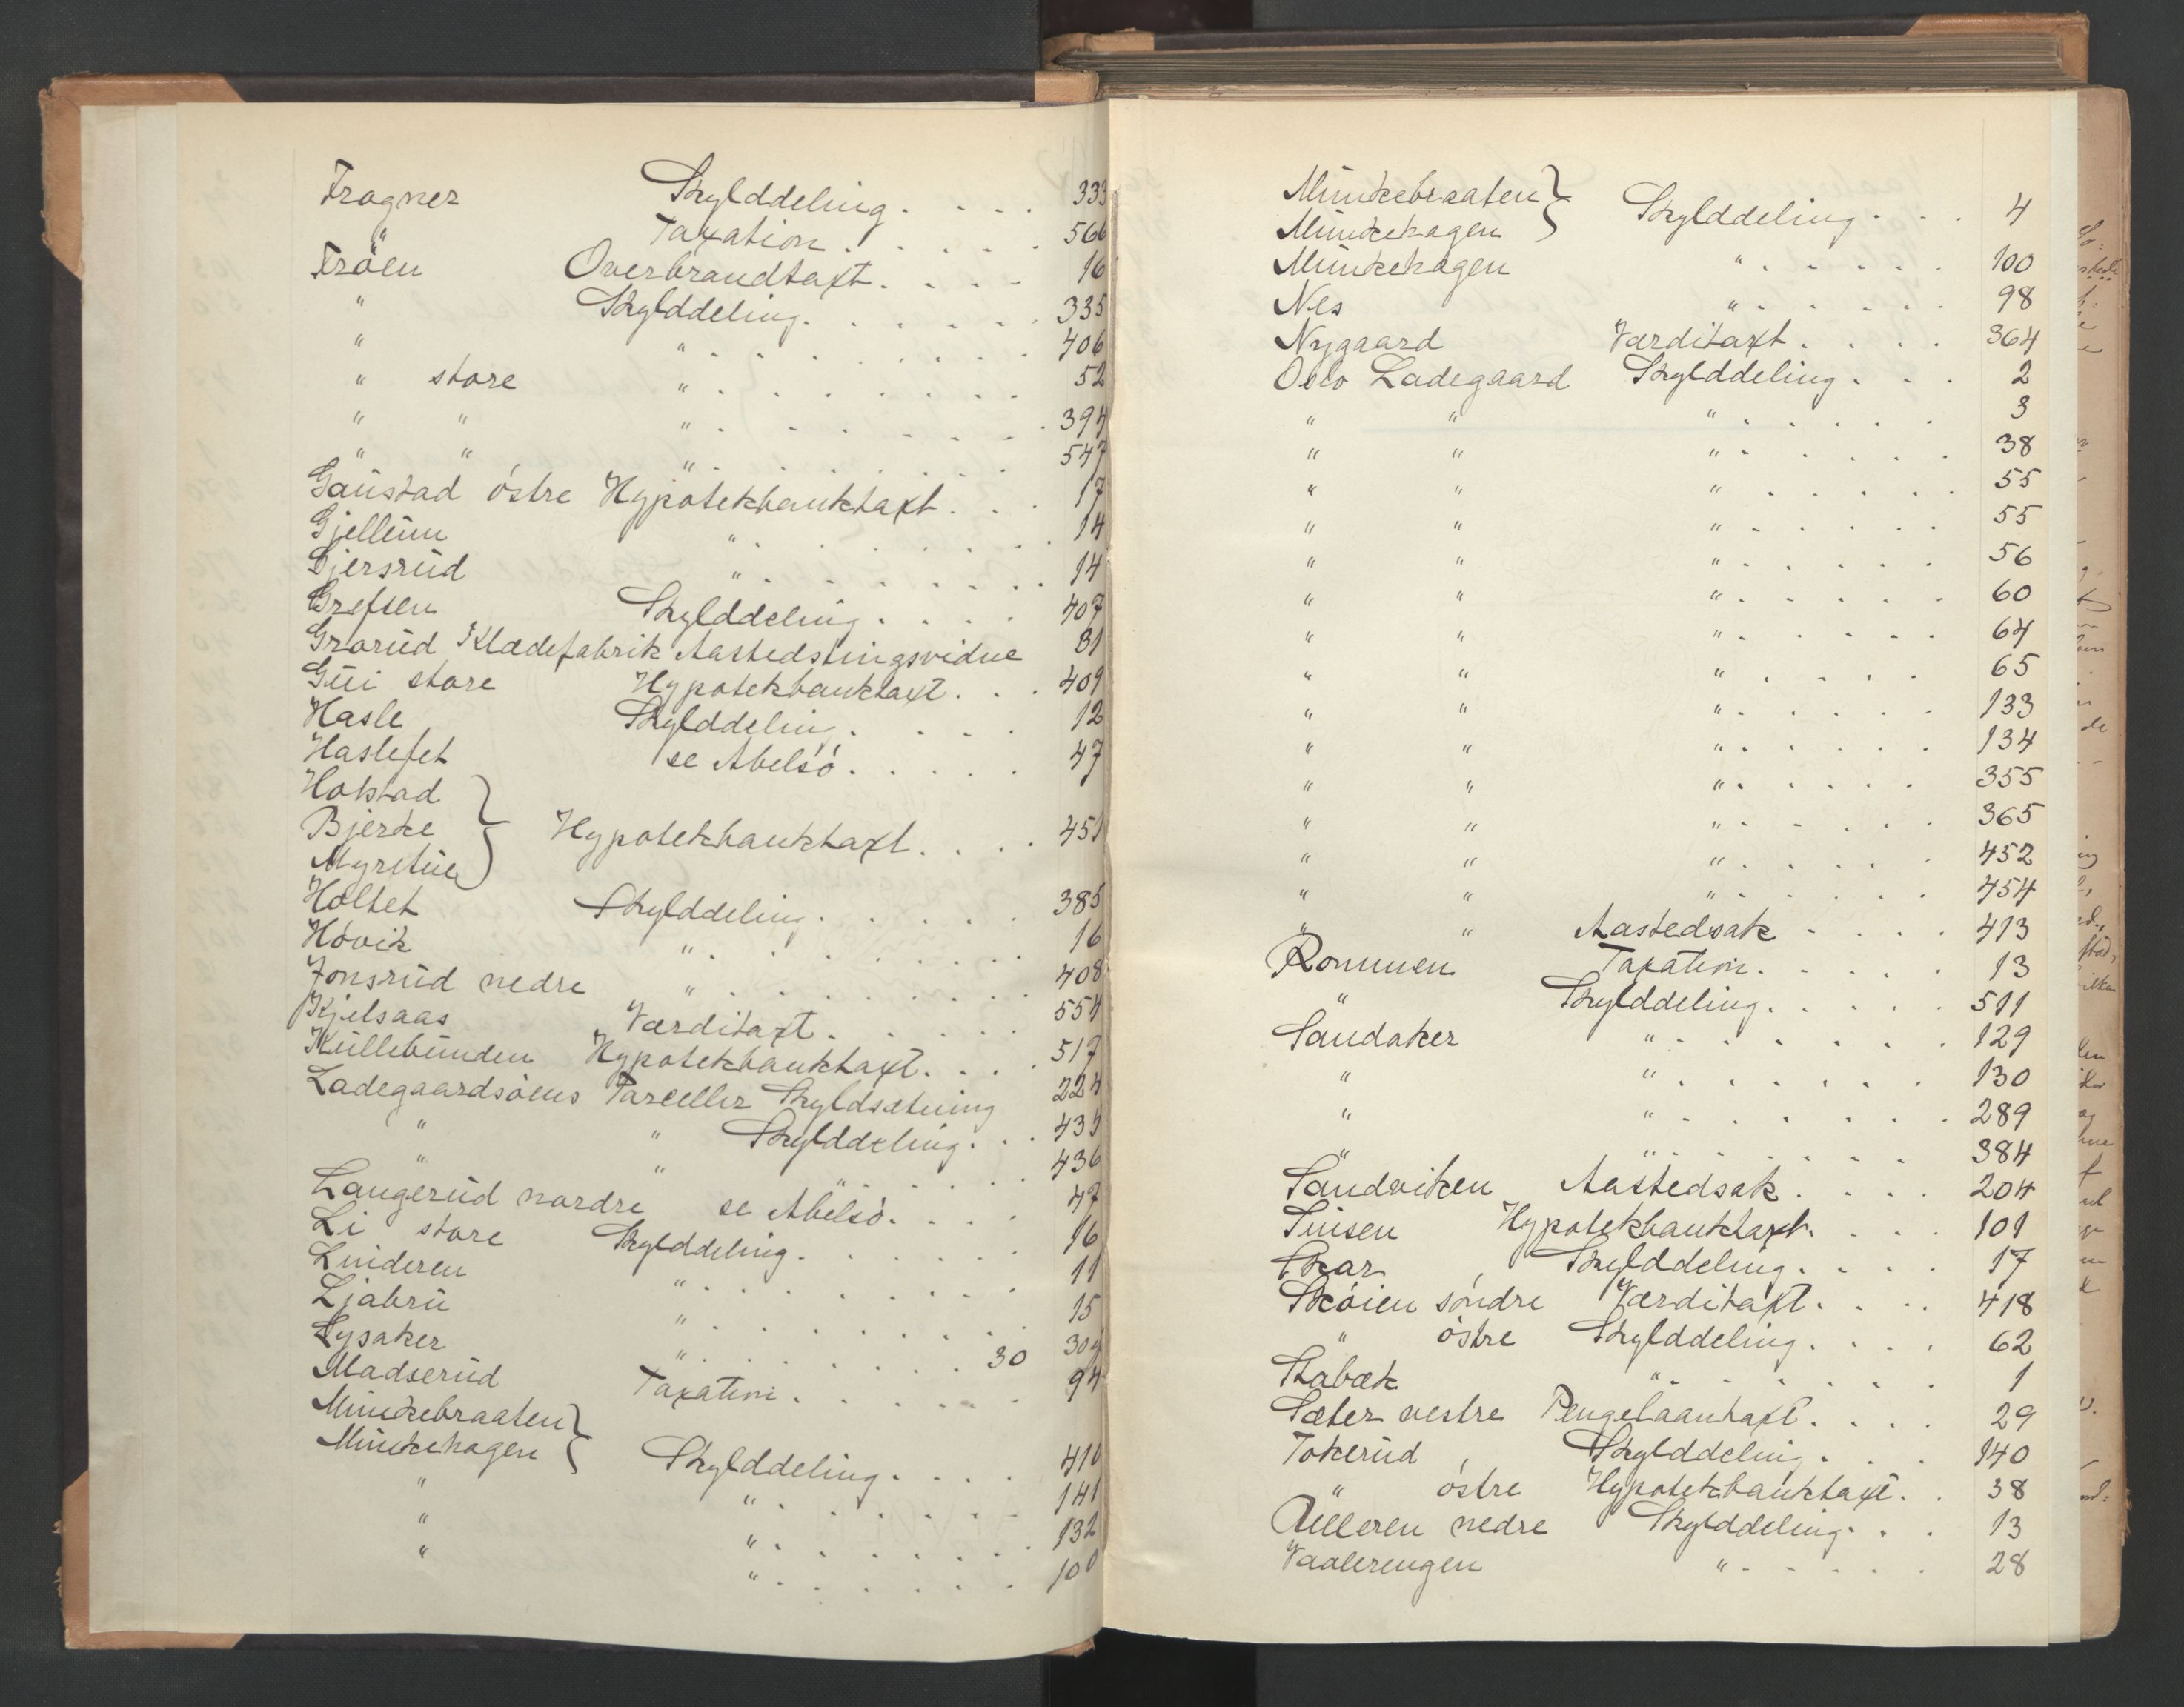 Frogner Skylddeling . . . . 333
" Taxation . . . . . 566
Frøen Overbrandtaxt . . . . 16
" Skylddeling . . . . . . 335
" " . . . . . . . . 406
" store " . . . . . . . 52
" " " . . . . . . . . 394
" " " . . . . . . . 547
Gaustad østre Hypotekbanktaxt . . . 17
Gjellum " . . . . . . . 14
Gjersrud " . . . . . . . 14
Grefsen Skylddeling . . . . 407
Grorud Klædefabrik Aastedstingsvidne 81
Gui store Hypotekbanktaxt . . . 409
Hasle Skylddeling . . . . 12
Haslefet se Abelsø . . . . . 47
Hokstad
Bjerke } Hypotekbanktaxt . . . . 451
Myretue
Holtet Skylddeling . . . . . 385
Høvik " . . . . . . . . 16
Jonsrud nedre " . . . . . . . . 408
Kjelsaas Værditaxt . . . . . 554
Kullebunden Hypotekbanktaxt . . . . 517
Ladegaardsøens Parceller Skyldsætning 224
" " Skylddeling . . . 435
" " " . . . . . 436
Langerud nordre se Abelsø . . . . 47
Li store Skylddeling . . . . . . 16
Linderen " . . . . . . . . 11
Ljabru " . . . . . . . . . 15
Lysaker " . . . . . . . . 30 309
Madserud Taxation . . . . . . 94
Munkebraaten }
Munkehagen } Skylddeling . . . . 410
" " . . . . . . 141
" " . . . . . . . 132
" " . . . . . . 100
Munkebraaten }
Munkehagen } Skylddeling . . . 4
Munkehagen " . . . . . 100
Nes " . . . . . 98
Nygaard Værditaxt . . . . 364
Oslo Ladegaard Skylddeling . . . 2
" " " . . . . . 3
" " " . . . . . 38
" " " . . . . . 55
" " " . . . . . 55
" " " . . . . . 56
" " " . . . . . 60
" " " . . . . . 64
" " " . . . . 65
" " " . . . . . 133
" " " . . . . . 134
" " " . . . . . 355
" " " . . . . . 365
" " " . . . . . 452
" " " . . . . . 454
" " Aastedsak . . . . 413
Rommen Taxation . . . . . 13
" Skylddeling . . . . . 511
Sandaker " . . . . . . . 129
" " . . . . . . 130
" " . . . . . . . 289
" " . . . . . . 384
Sandviken Aastedsak . . . . 204
Sinsen Hypotekbanktaxt . . . . 101
Skar Skylddeling . . . . 17
Skøien søndre Værditaxt . . . . 418
" østre Skylddeling . . . . 62
Stabæk " . . . . . . 1
Sæter vestre Pengelaantaxt . . . . 29
Tokerud Skylddeling . . . 140
" østre Hypotekbanktaxt . . 38
Ulleren nedre Skylddeling . . . 13
Vaalerengen " . . . . . 28